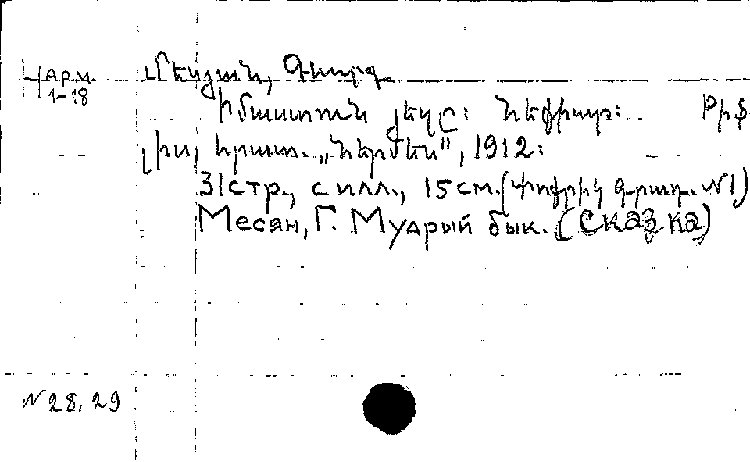 Арм.
1-18
Մեսյան, Գևորգ
Իմաստուն յեզը: Հեքիաթ: Թիֆ-
լիս, հրատ. „Հերմես", 1912:
31 стр., с илл., 15 см. (Փոքրիկ գրադ. №1)
Месян, Г. Мудрый бык. (Сказка)
№ 28, 29